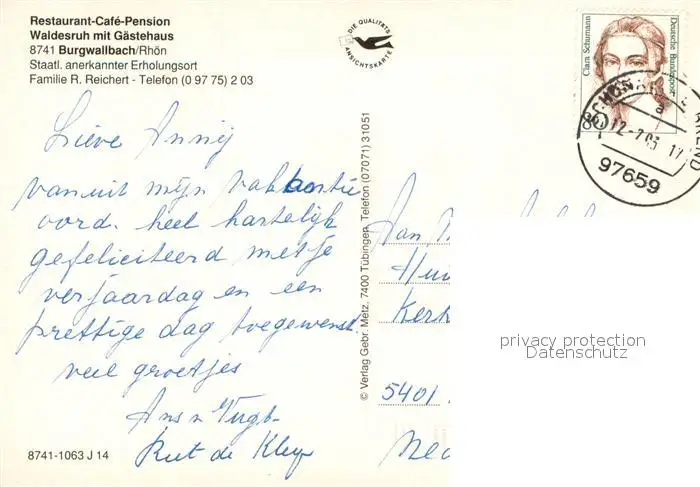 Restaurant-Café-Pension
Waldesruh mit Gästehaus
8741 Burgwallbach/Rhön
Staatl. anerkannter Erholungsort
Familie R. Reichert - Telefon (0 97 75) 2 03
DIE QUALITÄTS
ANSICHTSKARTE
Clara Schumann
Deutsche Bundespost
80
97659
Lieve Annij
vanuit mijn vakantie
oord. heel hartelijk
gefeliciteerd met je
verjaardag en een
prettige dag toegewenst.
veel groetjes
Rut de Kleyn
© Verlag Gebr. Metz, 7400 Tübingen, Telefon (07071) 31051
Aan
5401
privacy protection
Datenschutz
8741-1063 J 14